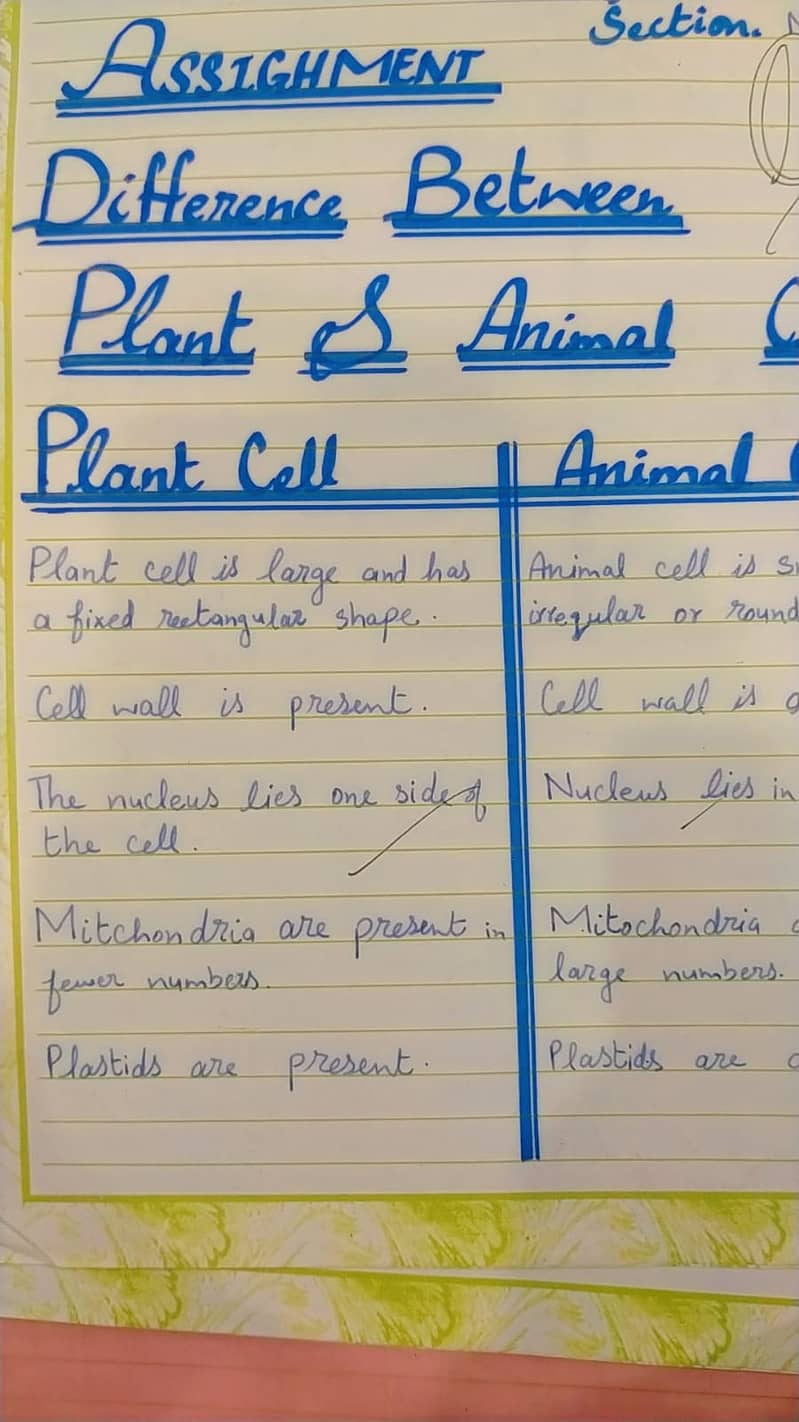 Section.
ASSIGHMENT
Difference Between
Plant & Animal
Plant Cell
Animal
Plant cell is large and has
a fixed rectangular shape.
Animal cell is
irregular or round
Cell wall is present.
Cell wall is
The nucleus lies one side of
the cell.
Nucleus lies in
Mitchondria are present in
fewer numbers.
Mitochondria
large numbers.
Plastids are present.
Plastids are